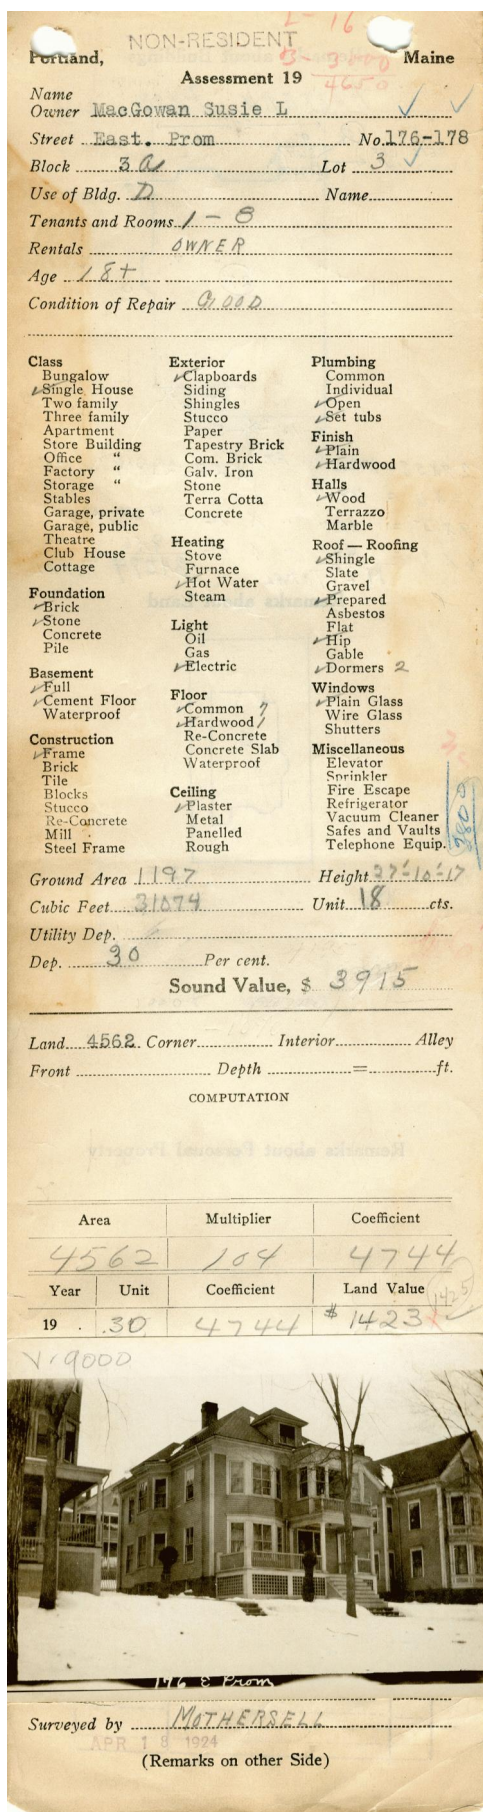 NON-RESIDENT
Portland, Maine
Assessment 19
4650
Name
Owner MacGowan Susie L
Street East. Prom No. 176-178
Block 3a Lot 3
Use of Bldg. D Name
Tenants and Rooms 1 - 8
Rentals OWNER
Age 18+
Condition of Repair GOOD
Class
Bungalow
Single House
Two family
Three family
Apartment
Store Building
Office "
Factory "
Storage "
Stables
Garage, private
Garage, public
Theatre
Club House
Cottage
Foundation
Brick
Stone
Concrete
Pile
Basement
Full
Cement Floor
Waterproof
Construction
Frame
Brick
Tile
Blocks
Stucco
Re-Concrete
Mill
Steel Frame
Exterior
Clapboards
Siding
Shingles
Stucco
Paper
Tapestry Brick
Com. Brick
Galv. Iron
Stone
Terra Cotta
Concrete
Heating
Stove
Furnace
Hot Water
Steam
Light
Oil
Gas
Electric
Floor
Common 7
Hardwood 1
Re-Concrete
Concrete Slab
Waterproof
Ceiling
Plaster
Metal
Panelled
Rough
Plumbing
Common
Individual
Open
Set tubs
Finish
Plain
Hardwood
Halls
Wood
Terrazzo
Marble
Roof — Roofing
Shingle
Slate
Gravel
Prepared
Asbestos
Flat
Hip
Gable
Dormers 2
Windows
Plain Glass
Wire Glass
Shutters
Miscellaneous
Elevator
Sprinkler
Fire Escape
Refrigerator
Vacuum Cleaner
Safes and Vaults
Telephone Equip.
3800
Ground Area 1197 Height 27'-10'-17
Cubic Feet 31074 Unit 18 cts.
Utility Dep.
Dep. 30 Per cent.
Sound Value, $ 3915
Land 4562 Corner Interior Alley
Front Depth = ft.
COMPUTATION
Area Multiplier Coefficient
4562 104 4744
Year Unit Coefficient Land Value
1425
19 .30 4744 $1423
V. 9000
176 E Prom
Surveyed by MOTHERSELL
APR 18 1924
(Remarks on other Side)